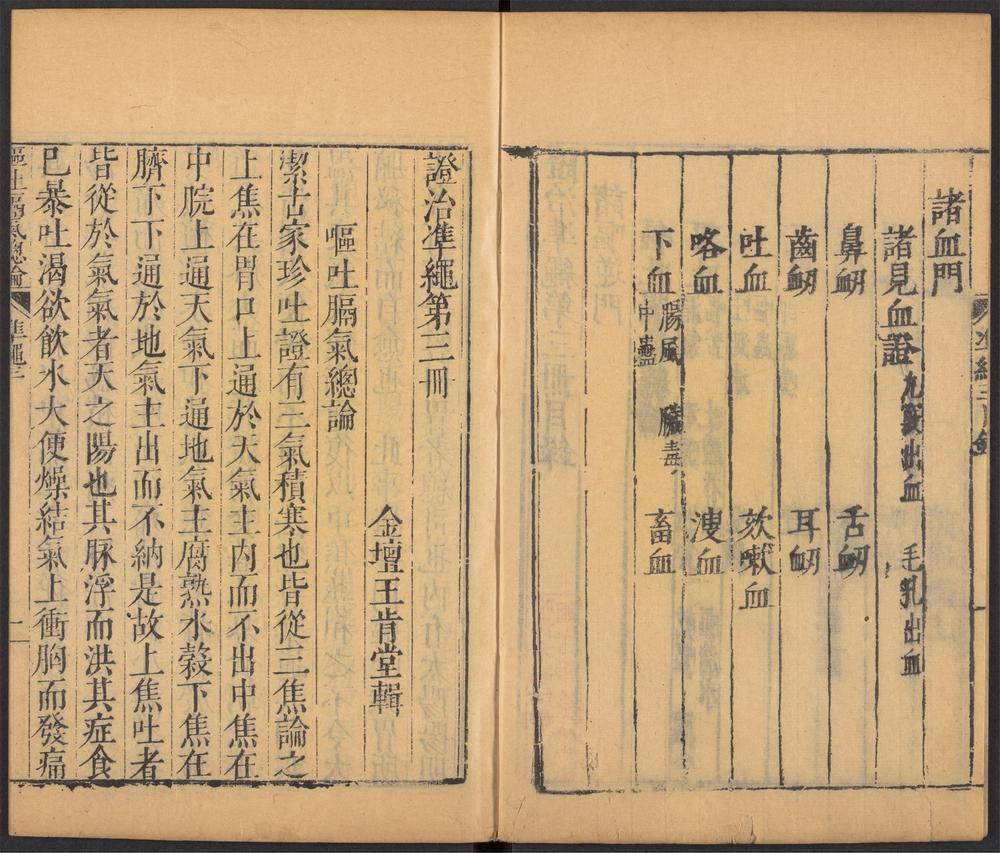 諸血門
諸見血證 九竅出血 毛孔出血
鼻衂 舌衂
齒衂 耳衂
吐血 欬嗽血
咯血 溲血
下血 腸風 臟毒 中蠱 畜血
證治準繩第三冊
金壇王肯堂輯
嘔吐膈氣總論
潔古家珍吐證有三氣積寒也皆從三焦論之
上焦在胃口上通於天氣主內而不出中焦在
中脘上通天氣下通地氣主腐熟水穀下焦在
臍下下通於地氣主出而不納是故上焦吐者
皆從於氣氣者天之陽也其脉浮而洪其症食
已暴吐渴欲飲水大便燥結氣上衝胸而發痛
嘔吐膈氣總論 準繩三 一